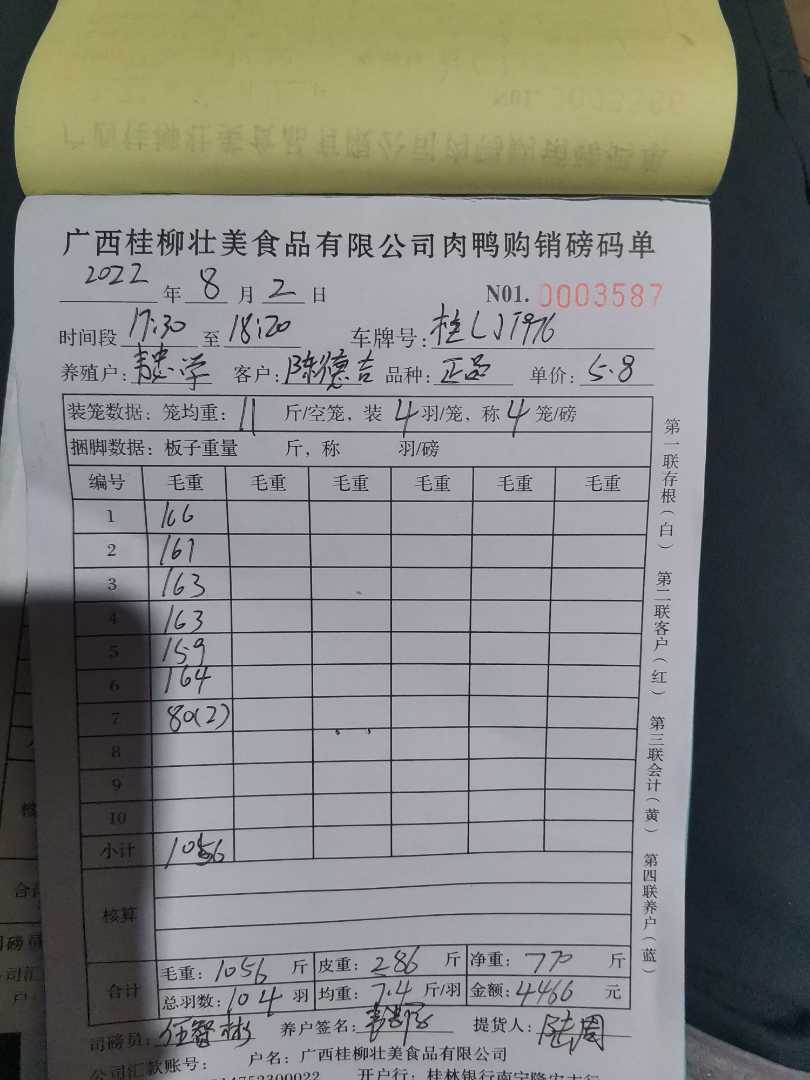 广西桂柳壮美食品有限公司肉鸭购销磅码单
2022 年 8 月 2 日 N01. 0003587
时间段 17:30 至 18:20 车牌号: 桂LJ1976
养殖户: 客户: 陈德吉 品种: 正品 单价: 5.8
装笼数据: 笼均重: 11 斤/空笼, 装 4 羽/笼, 称 4 笼/磅
捆脚数据: 板子重量 斤, 称 羽/磅
编号 毛重 毛重 毛重 毛重 毛重 毛重
1 166
2 161
3 163
4 163
5 159
6 164
7 80(2)
8
9
10
小计 1056
核算
合计
毛重: 1056 斤 皮重: 286 斤 净重: 770 斤
总羽数: 104 羽 均重: 7.4 斤/羽 金额: 4466 元
司磅员: 伍智彬 养户签名: 提货人: 陆周
公司汇款账号: 户名: 广西桂柳壮美食品有限公司
开户行: 桂林银行南宁隆安支行
第一联存根(白) 第二联客户(红) 第三联会计(黄) 第四联养户(蓝)